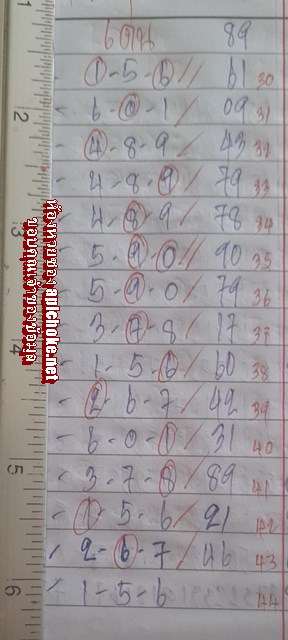 6 ตัวบน 89
- 1-5-6 // 61 30
- 6-0-1 / 09 31
- 4-8-9 / 43 32
- 4-8-9 / 79 33
- 4-8-9 / 78 34
- 5-9-0 // 90 35
- 5-9-0 / 79 36
- 3-7-8 / 17 37
- 1-5-6 / 60 38
- 2-6-7 / 42 39
- 6-0-1 / 31 40
- 3-7-8 / 89 41
- 1-5-6 / 21 42
- 2-6-7 / 46 43
- 1-5-6 44
1
2
3
4
5
6
apichoke.net